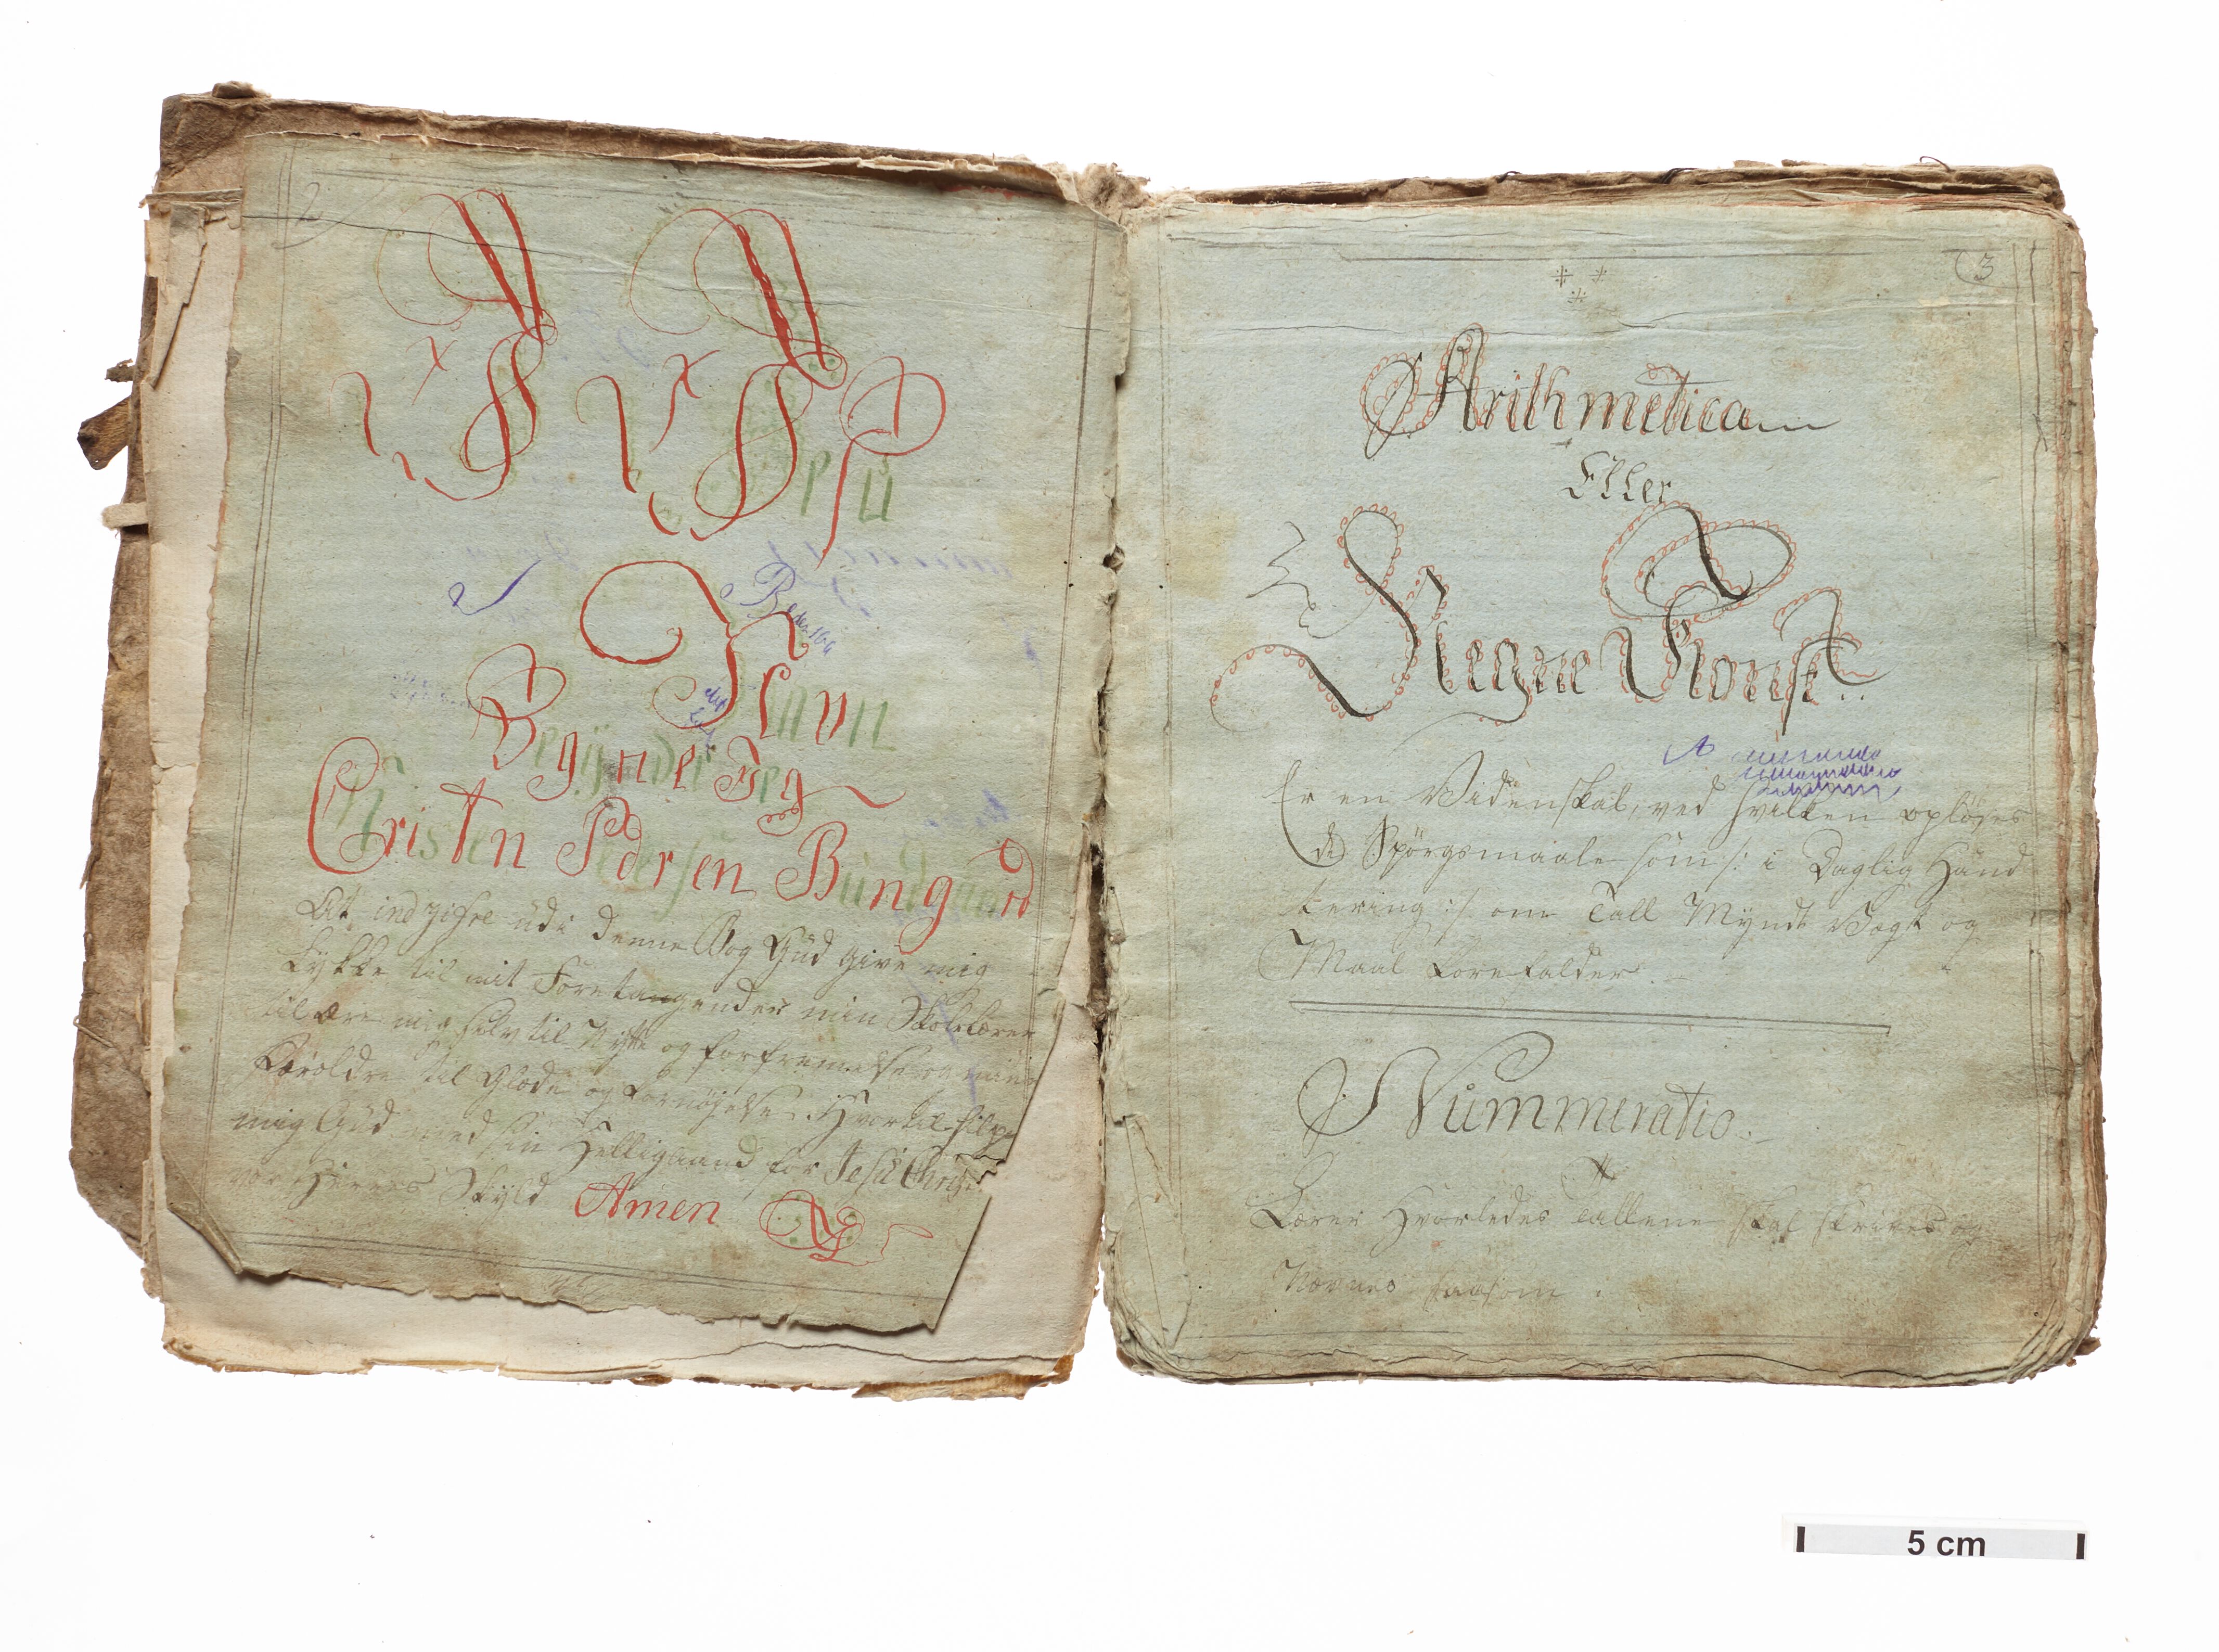 2
I Jesu
Navn
Begynder Jeg
Cristen Pedersen Bundgaard
At indzifre udi denne Bog Gud give mig
Lykke til mit Foretagender min Skolelærer
til Ære mig selv til Nytte og forfremelse og mine
Foroldre til Glæde og Fornøjelse. Hvortil hilpe
mig Gud med sin Helligaand for Jesu Christi
vor Herres Skyld Amen
3
Arithmetica
Eller
Regne Konst.
Er en Videnskab, ved Hvilken opløses
de Spørgsmaale som /: i Daglig Hand
tering :/ om Tall Myndt Vægt og
Maal Forefalder.
Nummeratio.
Lærer Hvorledes Tallene skal skrives og
Nævnes saasom.
5 cm